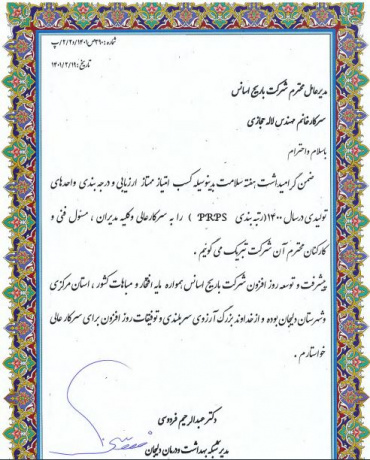 شماره: ۳۹۰/ص/۱۴۰۱/۲/۲/پ
تاریخ: ۱۴۰۱/۲/۱۹
مدیرعامل محترم شرکت باریج اسانس
سرکار خانم مهندس لاله حجازی
باسلام واحترام
ضمن گرامیداشت هفته سلامت بدینوسیله کسب امتیاز ممتاز ارزیابی و درجه بندی واحدهای
تولیدی درسال ۱۴۰۰(رتبه بندی PRPS ) را به سرکارعالی وکلیه مدیران ، مسئول فنی و
کارکنان محترم آن شرکت تبریک می گوئیم .
پیشرفت و توسعه روز افزون شرکت باریج اسانس همواره مایه افتخار و مباهات کشور ، استان مرکزی
وشهرستان دلیجان بوده و از خداوند بزرگ آرزوی سربلندی و توفیقات روز افزون برای سرکار عالی
خواستارم .
دکتر عبدالرحیم فردوسی
مدیر شبکه بهداشت ودرمان دلیجان